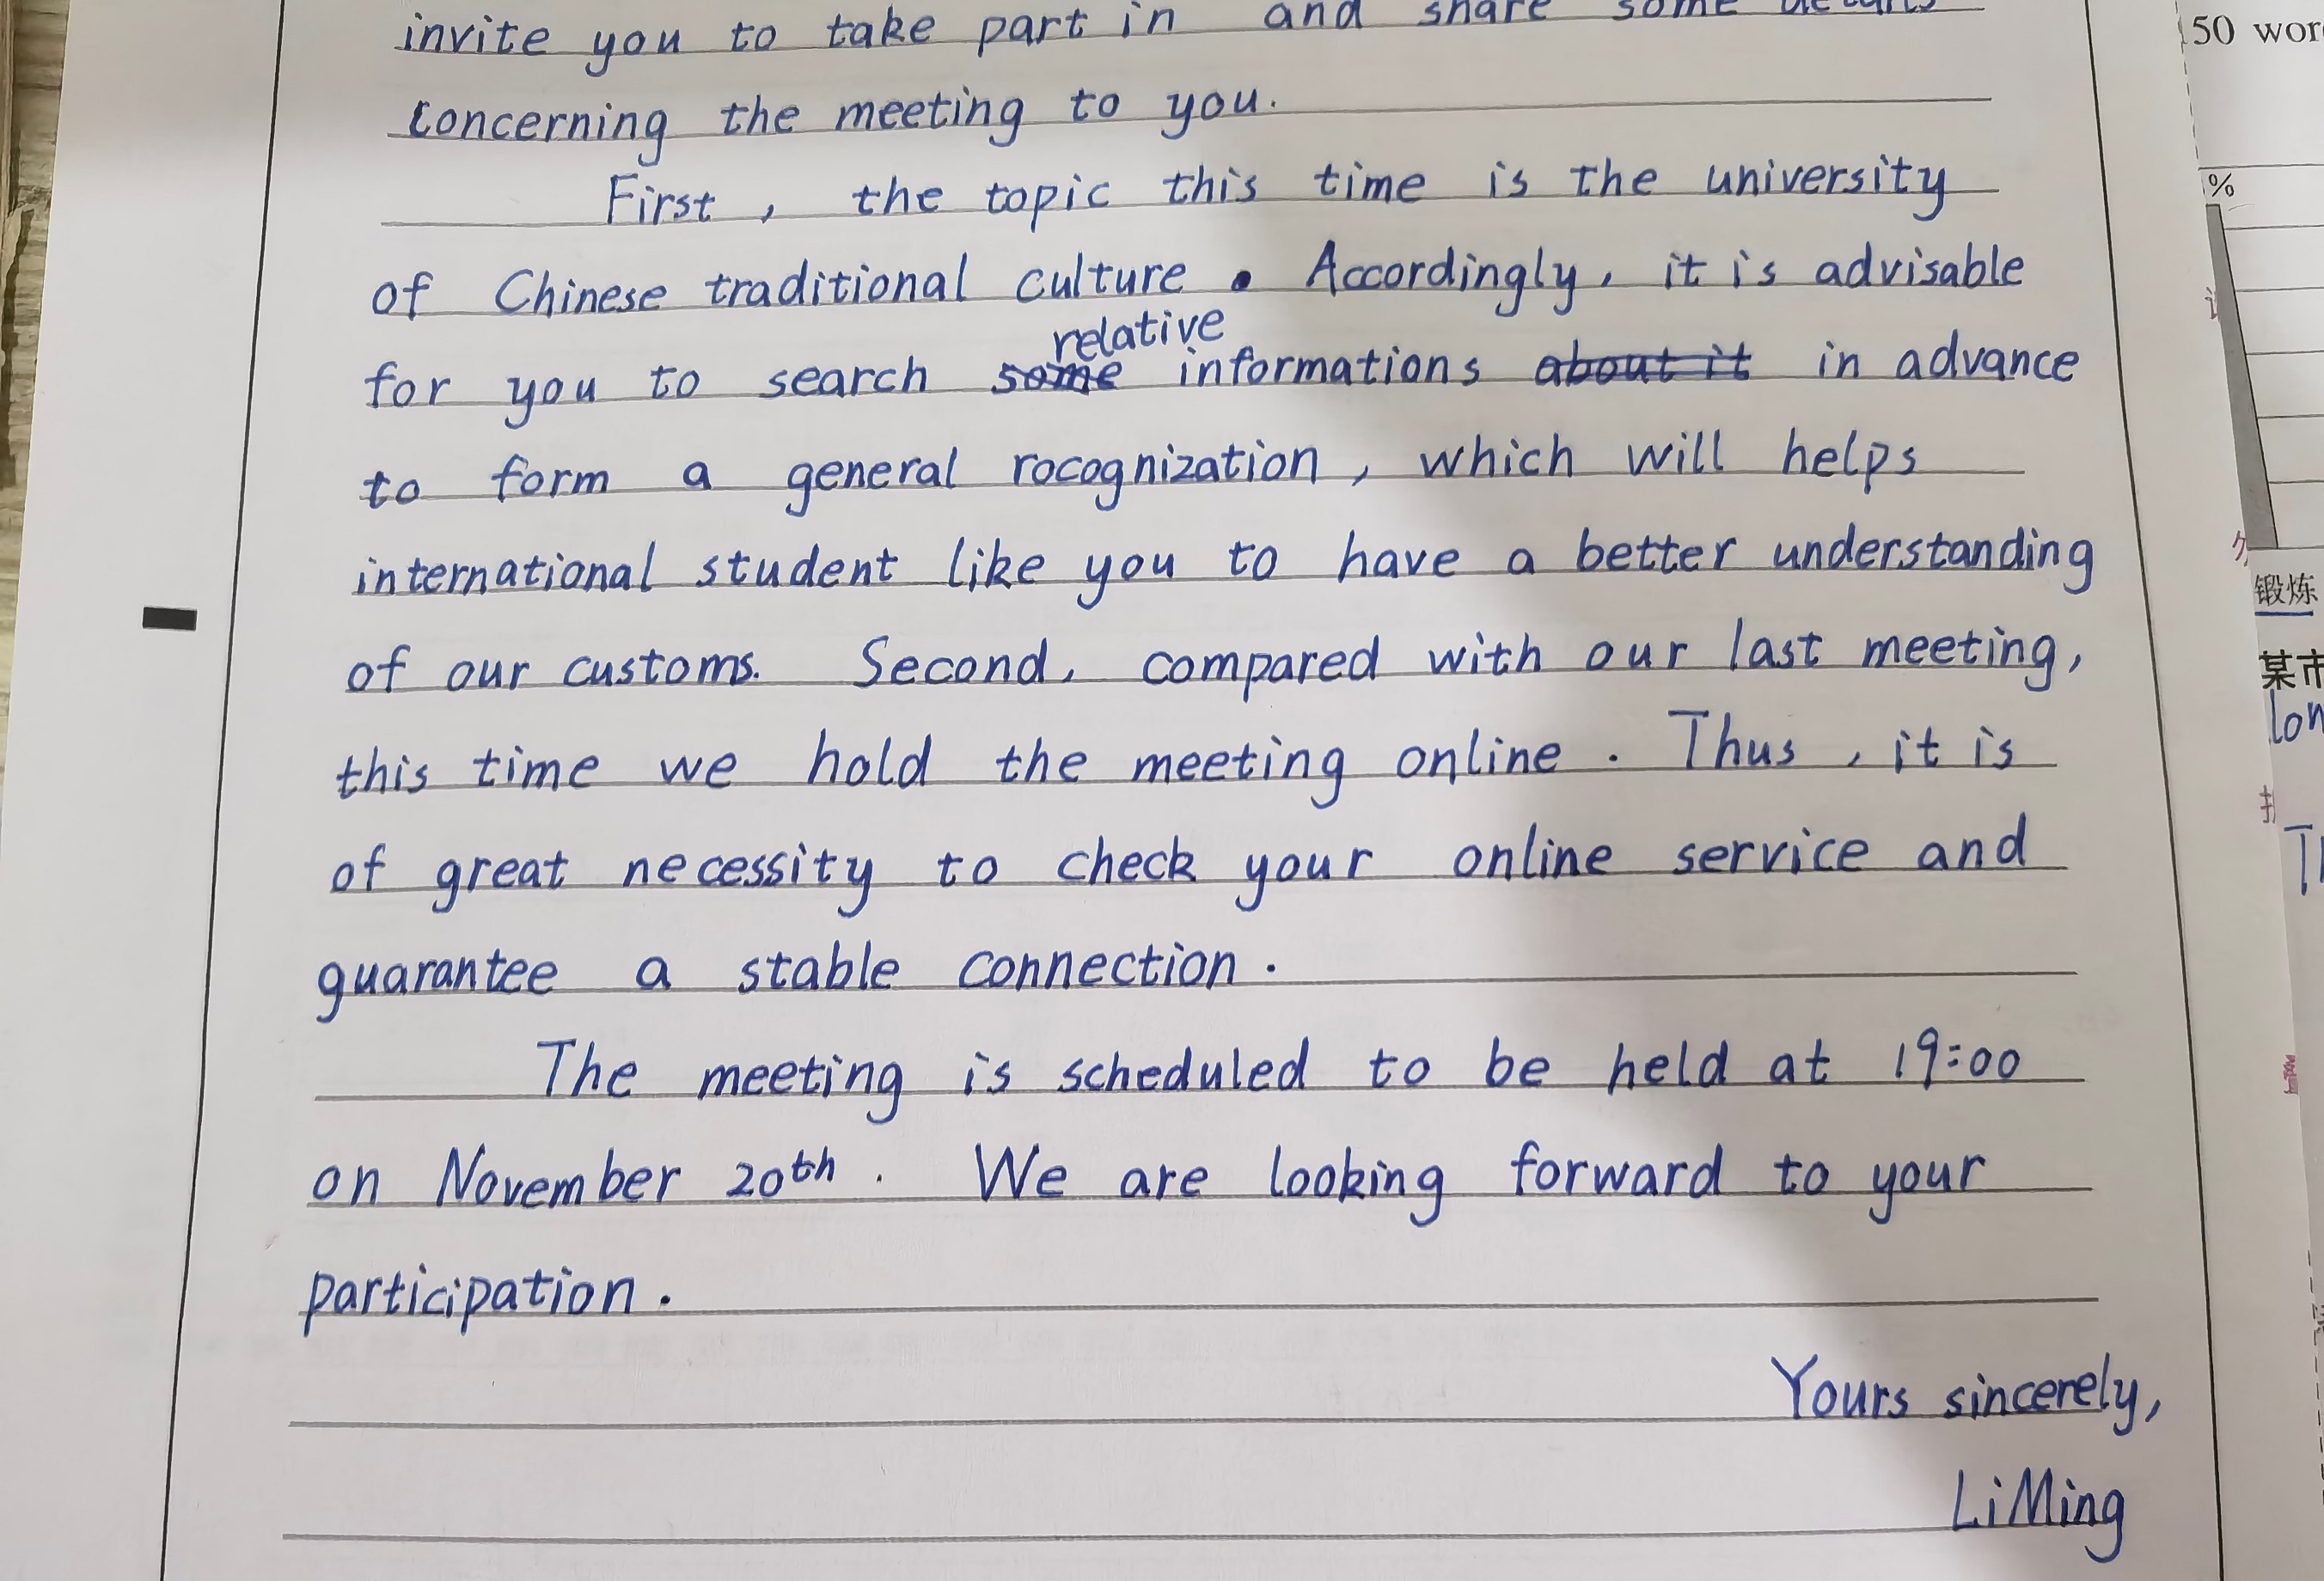 invite you to take part in and share some details
concerning the meeting to you.
First, the topic this time is the university
of Chinese traditional culture. Accordingly, it is advisable
relative
for you to search some informations about it in advance
to form a general rocognization, which will helps
international student like you to have a better understanding
of our customs. Second, compared with our last meeting,
this time we hold the meeting online. Thus, it is
of great necessity to check your online service and
guarantee a stable connection.
The meeting is scheduled to be held at 19:00
on November 20th. We are looking forward to your
participation.
Yours sincerely,
LiMing
50
%
锻炼
某市